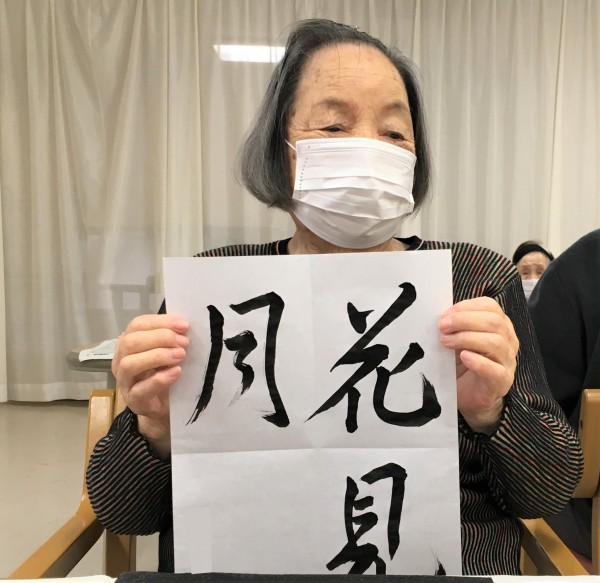 花見
月